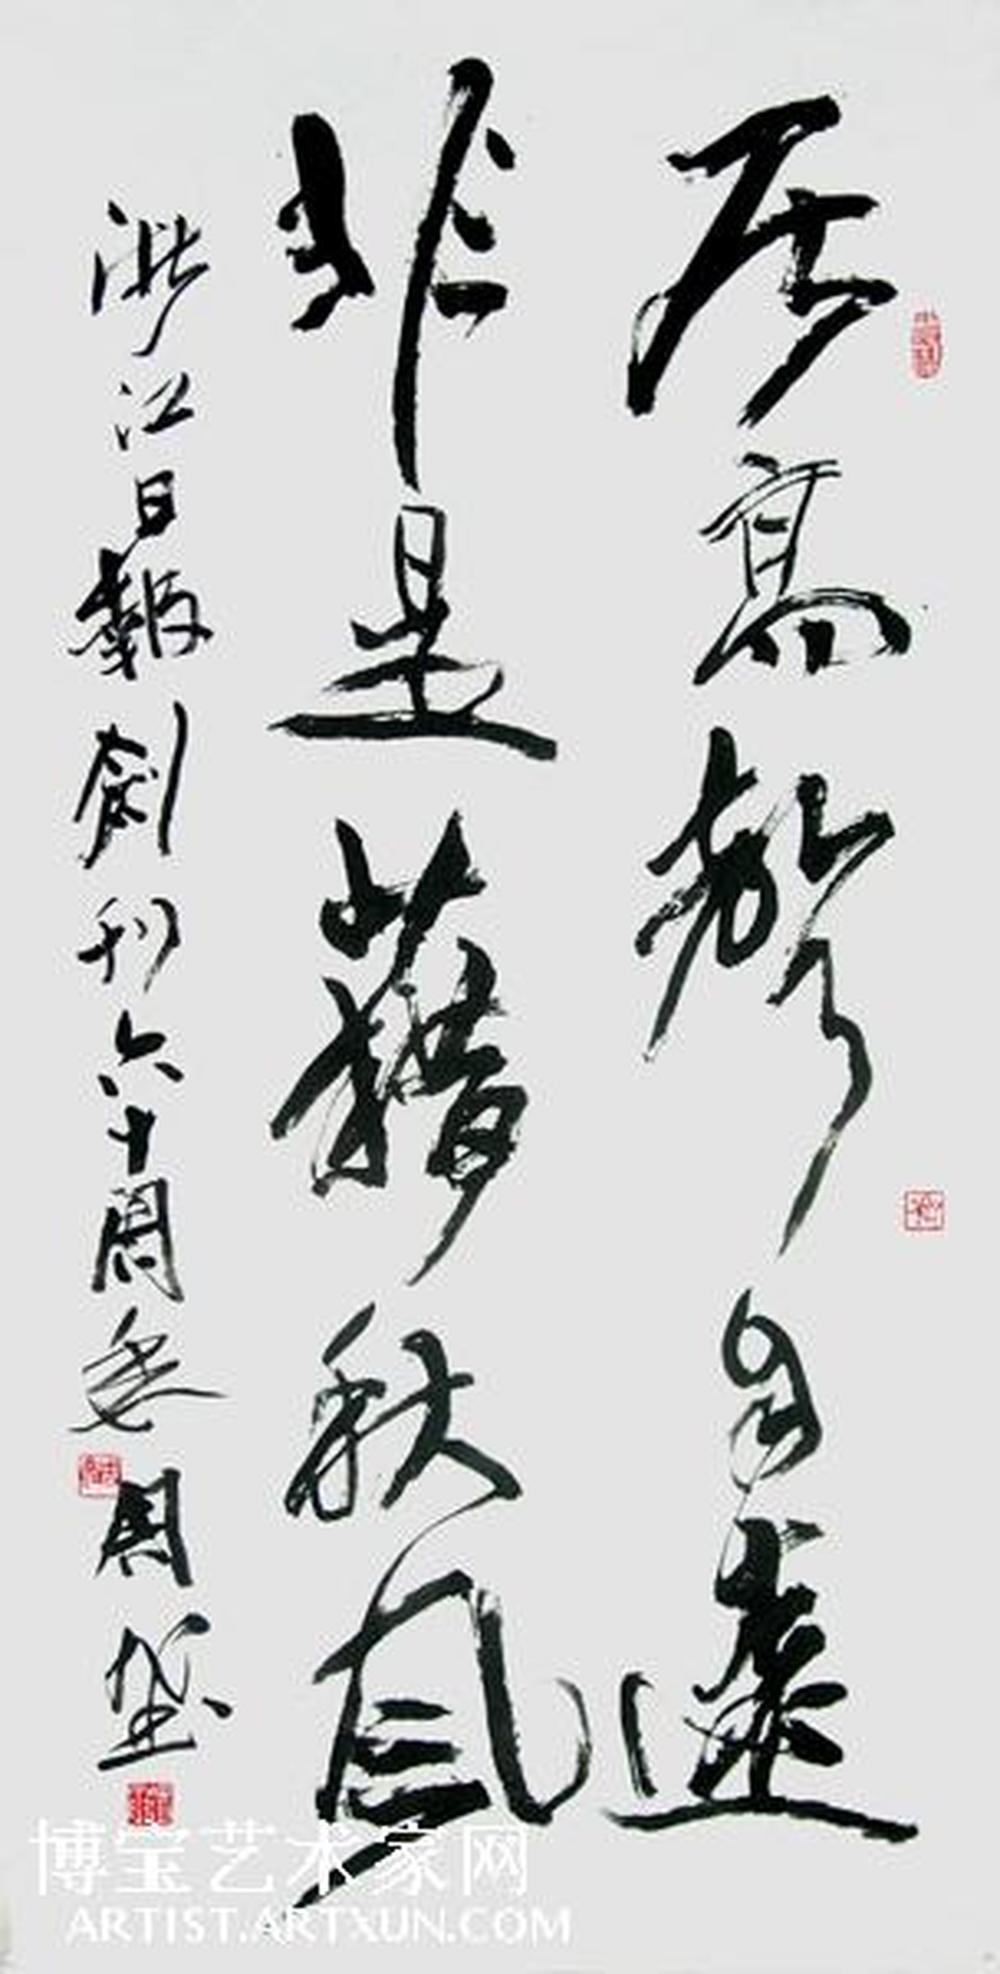 居高聲自遠
非是藉秋風
浙江日報創刊六十周年 周
博宝艺术家网
ARTIST.ARTXUN.COM